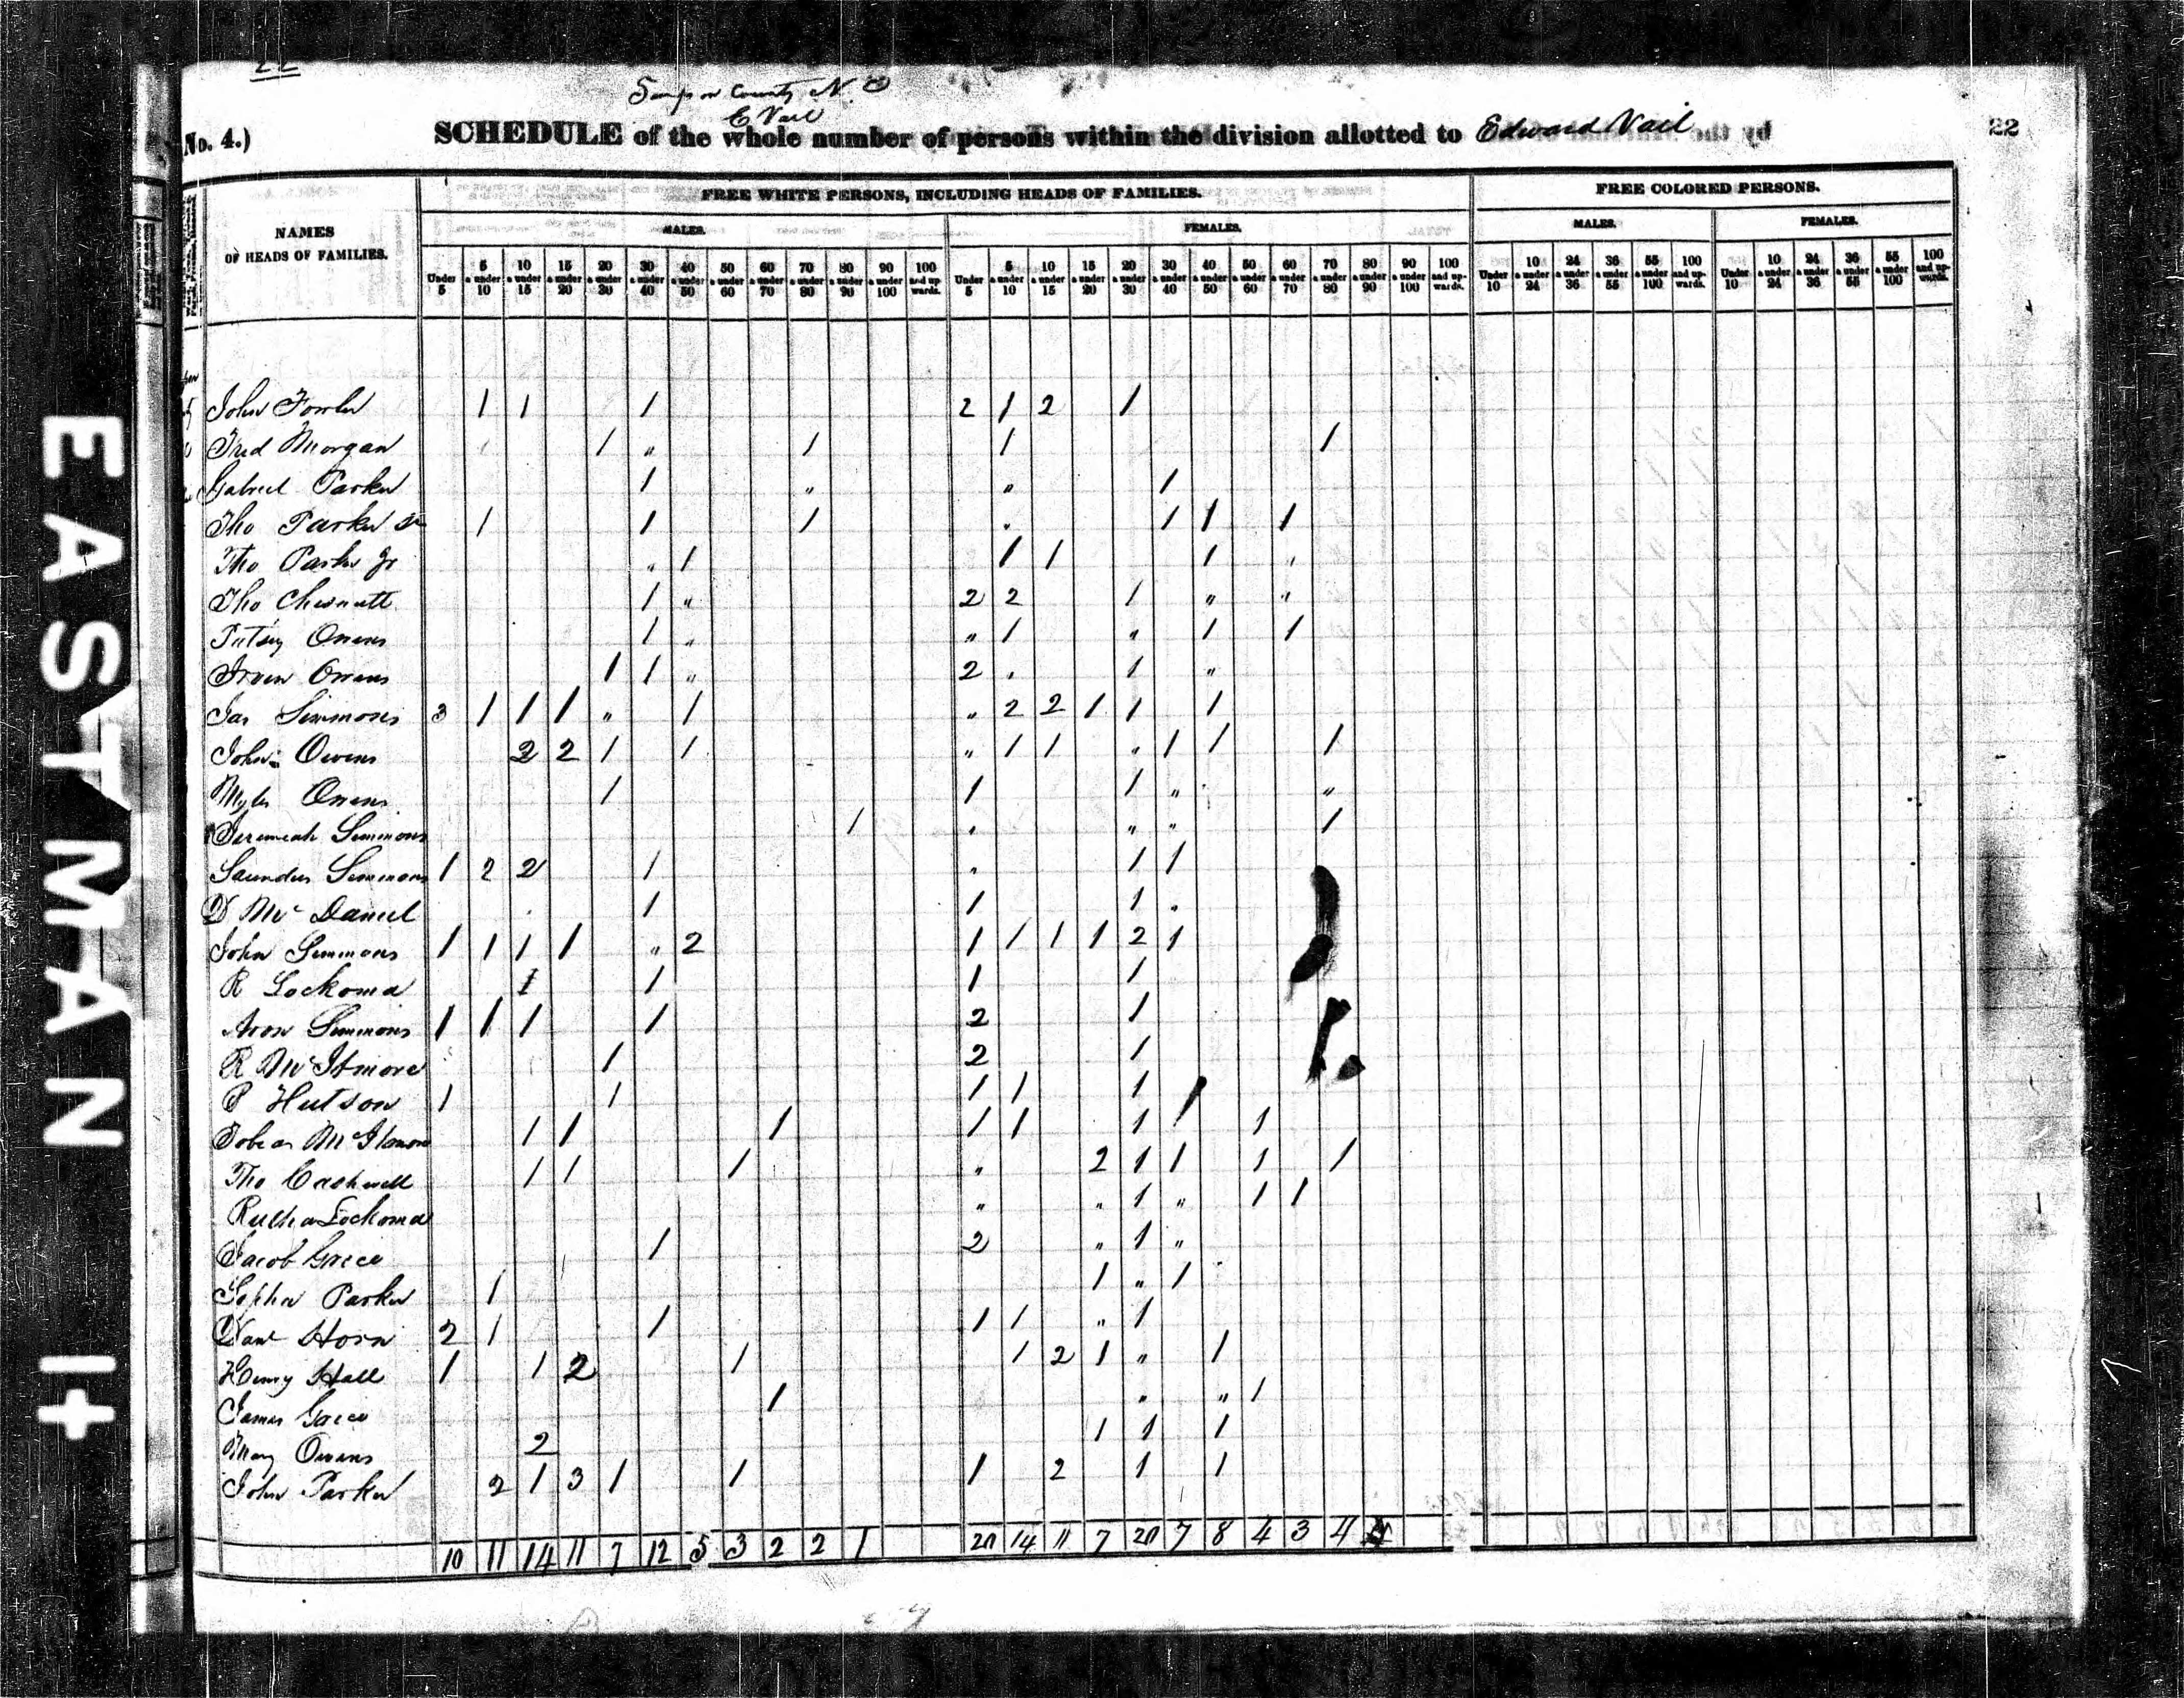 22
Sampson County N. C
E Vail
No. 4.) SCHEDULE of the whole number of persons within the division allotted to Edward Vail 22
NAMES OF HEADS OF FAMILIES.
FREE WHITE PERSONS, INCLUDING HEADS OF FAMILIES. FREE COLORED PERSONS.
MALES. FEMALES. MALES. FEMALES.
Under 5 5 a under 10 10 a under 15 15 a under 20 20 a under 30 30 a under 40 40 a under 50 50 a under 60 60 a under 70 70 a under 80 80 a under 90 90 a under 100 100 and up wards. Under 5 5 a under 10 10 a under 15 15 a under 20 20 a under 30 30 a under 40 40 a under 50 50 a under 60 60 a under 70 70 a under 80 80 a under 90 90 a under 100 100 and up-wards. Under 10 10 a under 24 24 a under 36 36 a under 55 55 a under 100 100 and up-wards. Under 10 10 a under 24 24 a under 36 36 a under 55 55 a under 100 100 and up-wards.
John Fowler 1 1 1 2 1 2 1
Fred Morgan 1 " 1 1 1
Gabriel Parker 1 " " 1
Tho Parker Sr 1 1 1 1 1 1
Tho Parker Jr " 1 1 1 1 "
Tho Chesnutt 1 " 2 2 1 " "
Owens 1 " " 1 " 1 1
Irvin Owens 1 1 " 2 1 "
Jas Simmons 3 1 1 1 " 1 " 2 2 1 1 1
John Owens 2 2 1 1 " 1 1 " 1 1 1
Myles Owens 1 1 1 " "
Jeremiah Simmons 1 " " " 1
Saunders Simmons 1 2 2 1 " 1 1
D McDaniel 1 1 1 "
John Simmons 1 1 1 1 " 2 1 1 1 1 2 1
R Lockoma 1 1 1 1
Aron Simmons 1 1 1 1 2 1
R 1 2 1
P Hutson 1 1 1 1 1
Tobias 1 1 1 1 1 1 1 1
Tho Cashwell 1 1 1 " 2 1 1 1 1
Rutha Lockoma " " 1 " 1 1
Jacob Grice 1 2 " 1 "
Parker 1 1 " 1
Horn 2 1 1 1 1 " 1
Henry Hall 1 1 2 1 1 2 1 " 1
James Grice 1 " " 1
Mary Owens 2 1 1 1
John Parker 2 1 3 1 1 1 2 1 1
10 11 14 11 7 12 5 3 2 2 1 20 14 11 7 20 7 8 4 3 4
EASTMAN 1+